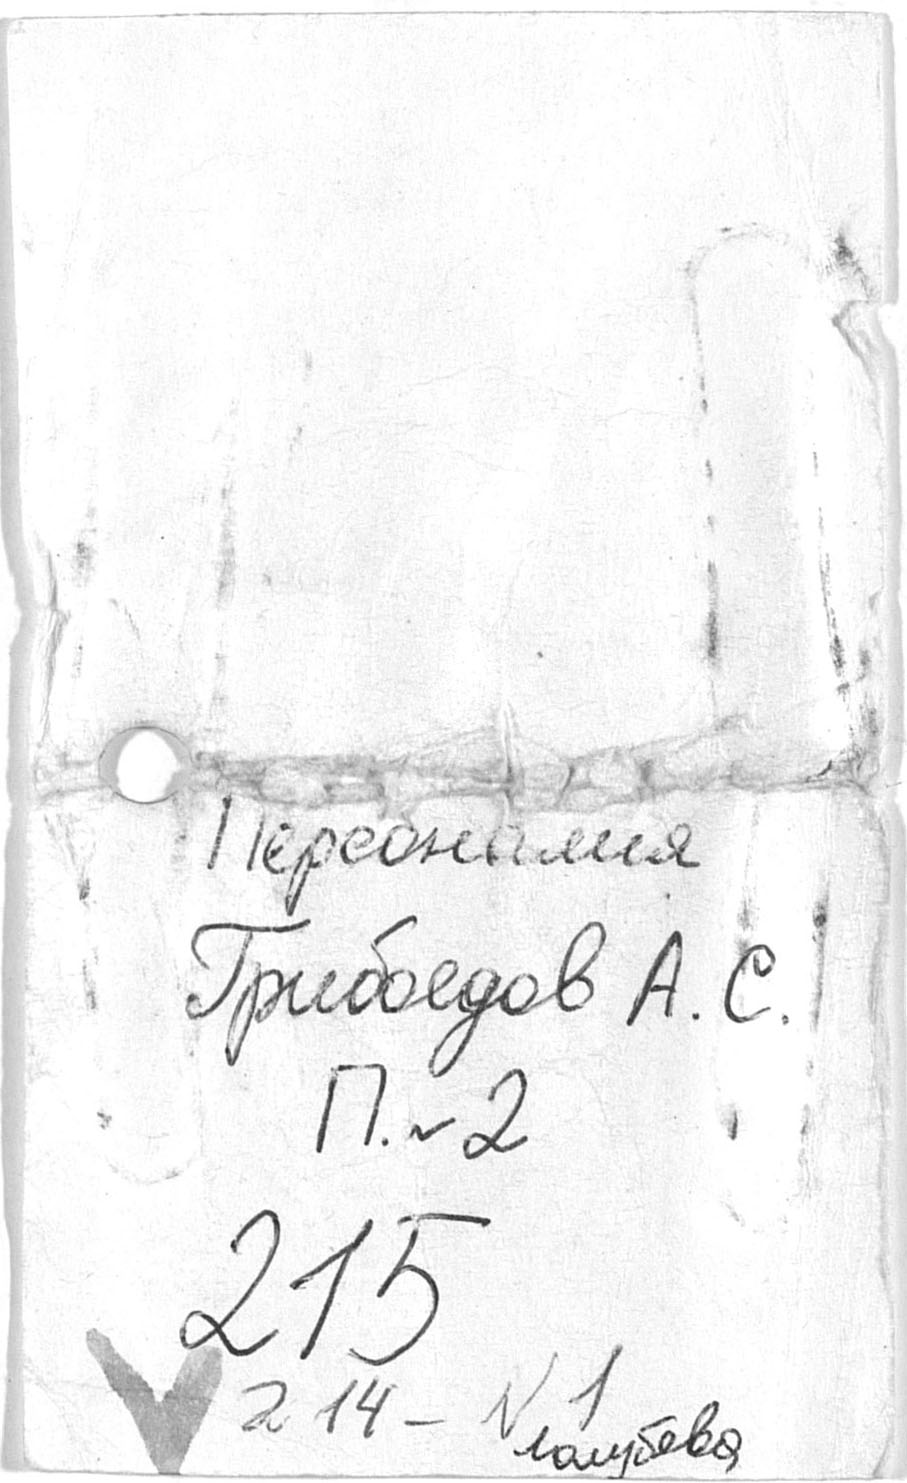 Персоналия
Грибоедов А. С.
П. ~ 2
215
214 - N 1
Голубева